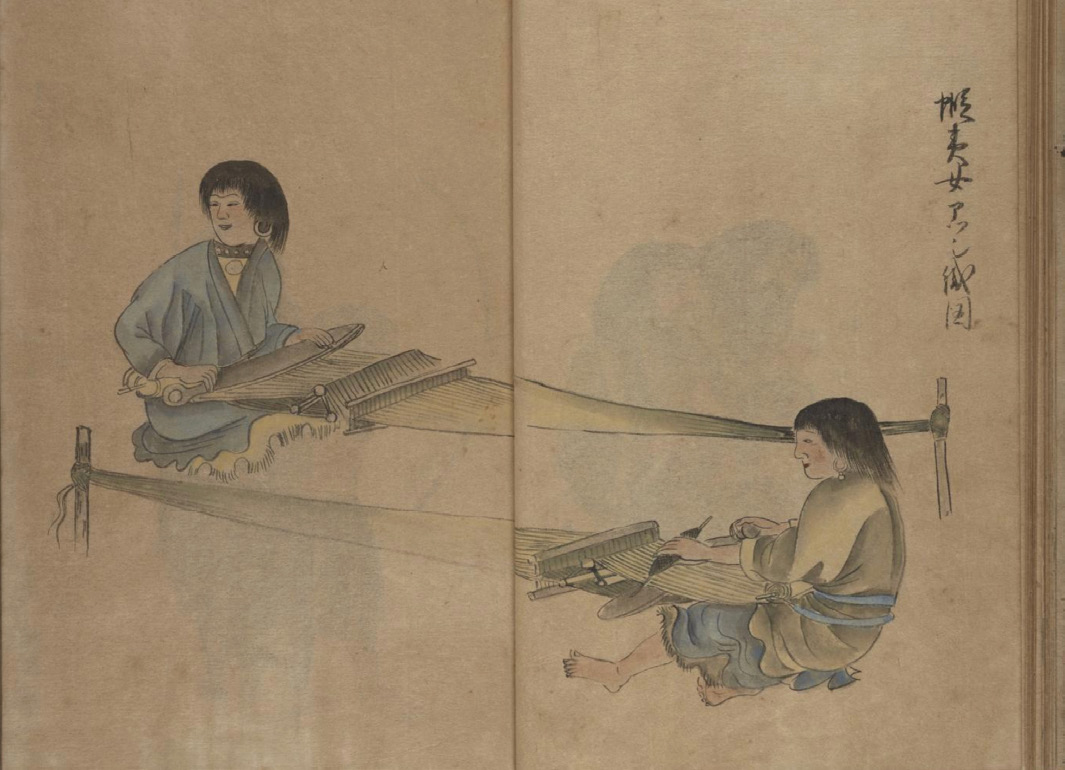 蝦夷女アツシ織図